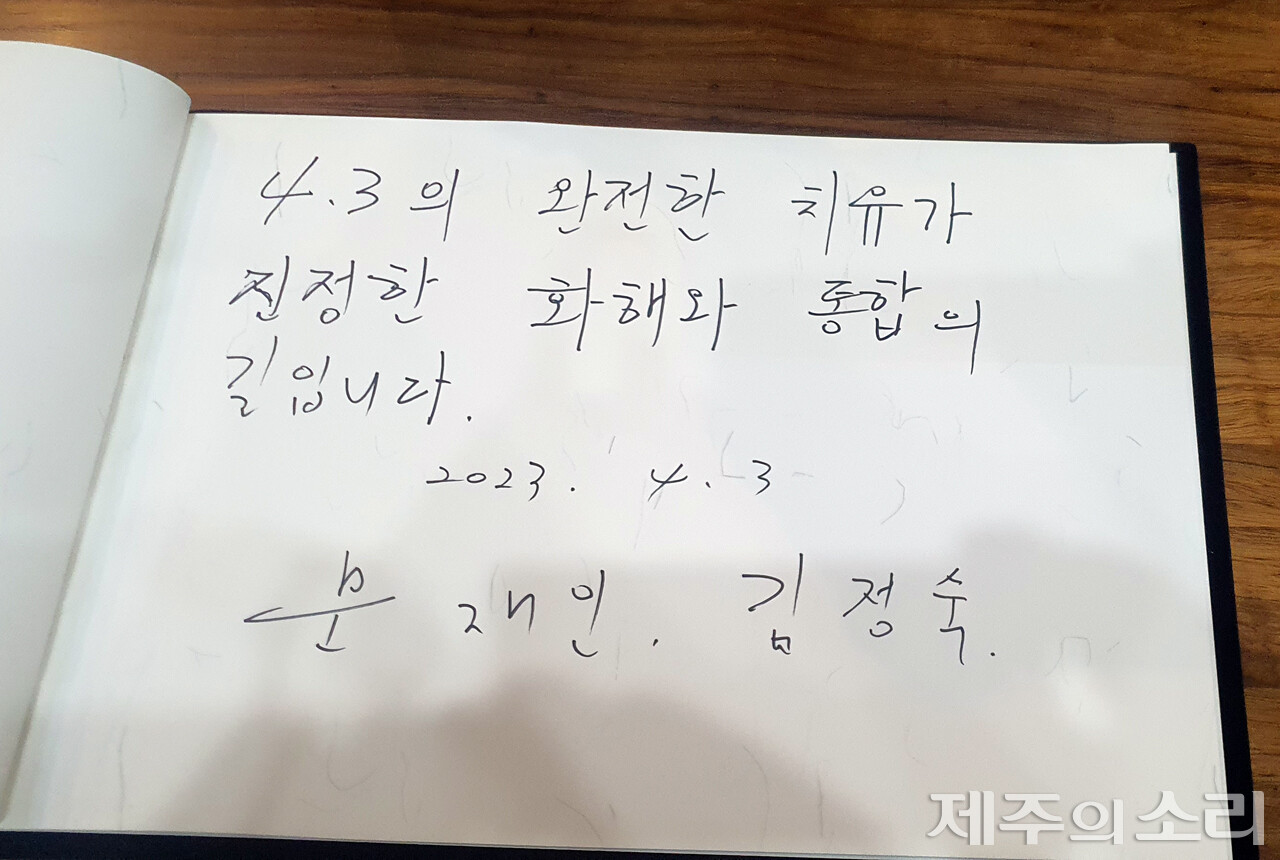 4.3의 완전한 치유가
진정한 화해와 통합의
길입니다.
2023. 4. 3
문재인. 김정숙.
제주의소리